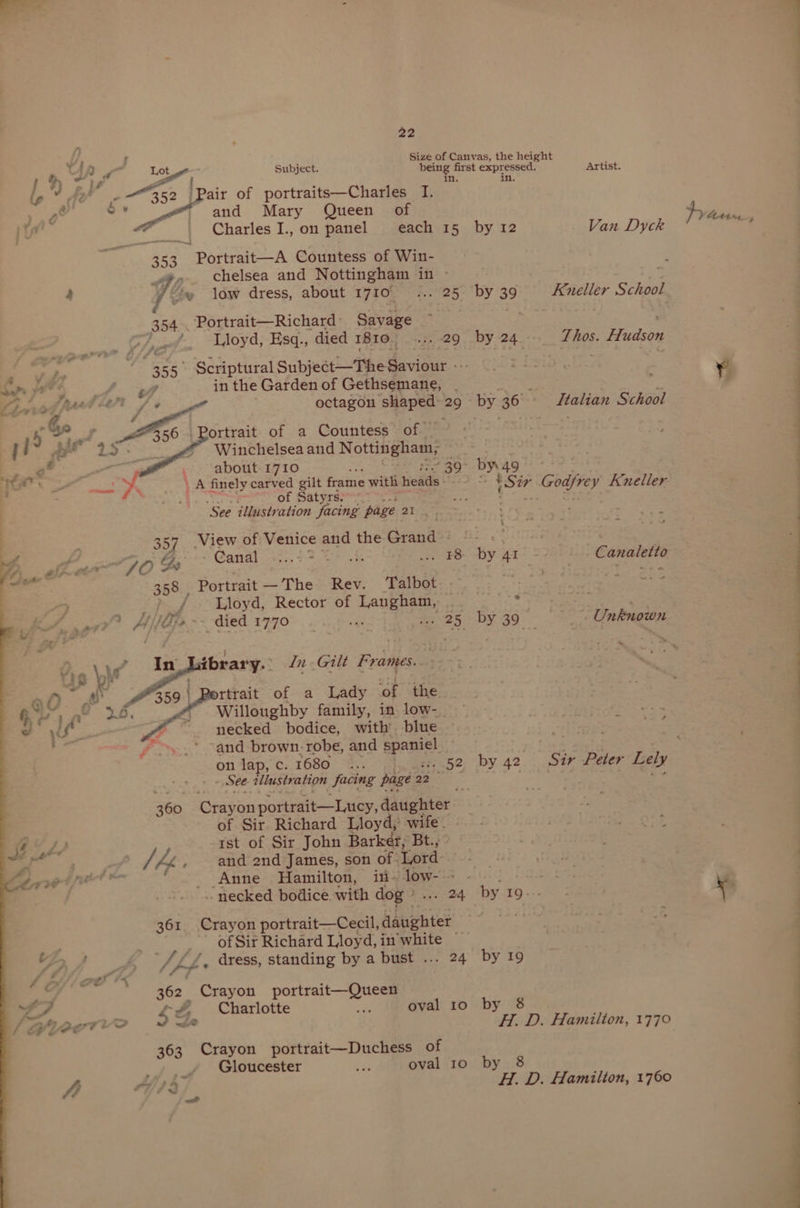 22
Size of Canvas, the height
Lot Subject. being first expressed. Artist.
in. in.
352 Pair of portraits—Charles I.
and Mary Queen of
Charles I., on panel each 15 by 12 Van Dyck
353 Portrait—A Countess of Win-
chelsea and Nottingham in
low dress, about 1710 ... 25 by 39 Kneller School
354 Portrait—Richard Savage
Lloyd, Esq., died 1810. ... 29 by 24 Thos. Hudson
355 Scriptural Subject—The Saviour
in the Garden of Gethsemane,
octagon shaped 29 by 36 Italian School
356 Portrait of a Countess of
Winchelsea and Nottingham,
about 1710 ... 39 by 49
A finely carved gilt frame with heads Sir Godfrey Kneller
of Satyrs.
See illustration facing page 21
357 View of Venice and the Grand
Canal ... ... 18 by 41 Canaletto
358 Portrait—The Rev. Talbot
Lloyd, Rector of Langham,
died 1770 ... ... 25 by 39 Unknown
In Library. In Gilt Frames.
359 Portrait of a Lady of the
Willoughby family, in low-
necked bodice, with blue
and brown robe, and spaniel
on lap, c. 1680 ... ... 52 by 42 Sir Peter Lely
See illustration facing page 22
360 Crayon portrait—Lucy, daughter
of Sir Richard Lloyd, wife
1st of Sir John Barker, Bt.,
and 2nd James, son of Lord
Anne Hamilton, in low-
necked bodice with dog ... 24 by 19
361 Crayon portrait—Cecil, daughter
of Sir Richard Lloyd, in white
dress, standing by a bust ... 24 by 19
362 Crayon portrait—Queen
Charlotte ... oval 10 by 8
H. D. Hamilton, 1770
363 Crayon portrait—Duchess of
Gloucester ... oval 10 by 8
H. D. Hamilton, 1760